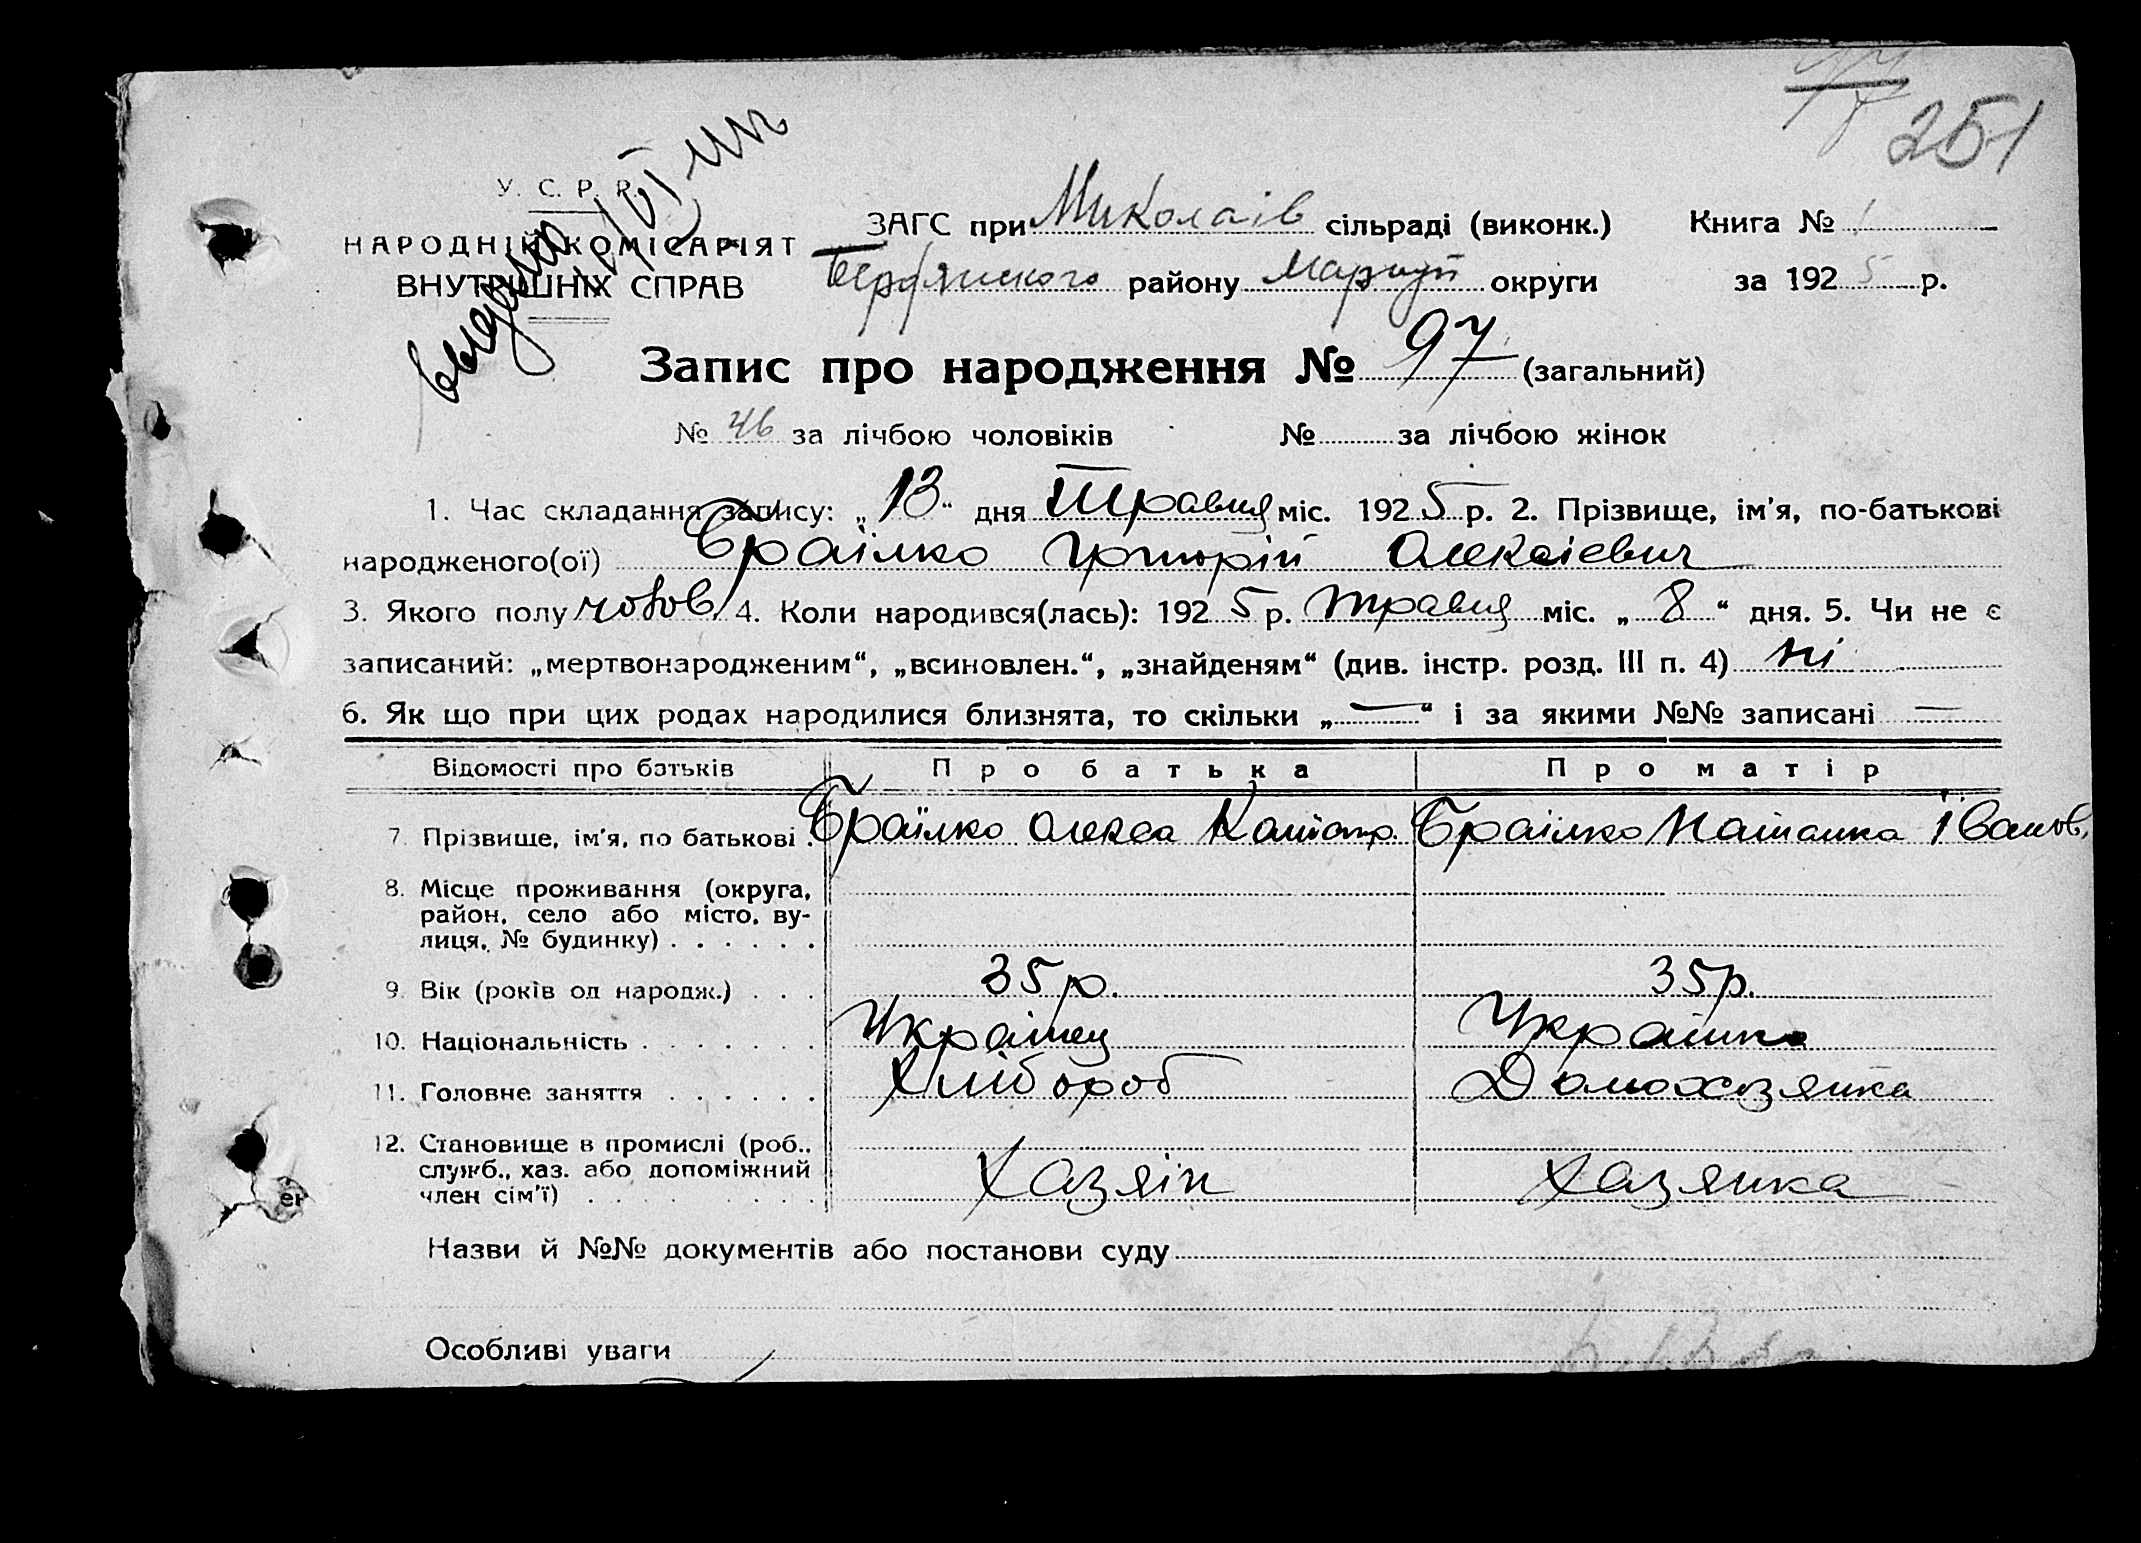 251
У. С. Р. Р.
НАРОДНІЙ КОМІСАРІЯТ
ВНУТРІШНІХ СПРАВ
ЗАГС при Миколаів сільраді (виконк.) Книга № 1
Бердянського району Маріуп округи за 1925 р.
Запис про народження № 97 (загальний)
№ 46 за лічбою чоловіків № за лічбою жінок
1. Час складання запису: „13“ дня Травця міс. 1925 р. 2. Прізвище, ім'я, по-батькові
народженого(ої) Браілко Григорій Олексіевич
3. Якого полу чолов. 4. Коли народився(лась): 1925 р. травця міс. „8“ дня. 5. Чи не є
записаний: „мертвонародженим“, „всиновлен.“, „знайденям“ (див. інстр. розд. III п. 4) ні
6. Як що при цих родах народилися близнята, то скільки „—“ і за якими №№ записані —
Відомості про батьків Про батька Про матір
7. Прізвище, ім'я, по батькові . Браілко Олекса Браілко Іванов.
8. Місце проживання (округа,
район, село або місто, ву-
лиця, № будинку) . . . . . .
9. Вік (років од народж.) . . . 35 р. 35 р.
10. Національність . . . . . . . Украінец Украінка
11. Головне заняття . . . . . . Хлібороб Домохозяйка
12. Становище в промислі (роб.,
служб., хаз. або допоміжний
член сім'ї) . . . . . . . . Хазяін Хазяйка
Назви й №№ документів або постанови суду
Особливі уваги